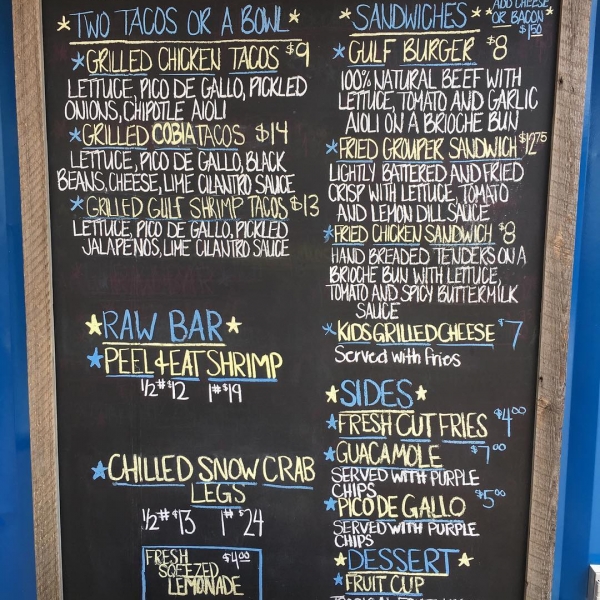 *TWO TACOS OR A BOWL*
*GRILLED CHICKEN TACOS $9
LETTUCE, PICO DE GALLO, PICKLED
ONIONS, CHIPOTLE AIOLI
*GRILLED COBIA TACOS $14
LETTUCE, PICO DE GALLO, BLACK
BEANS, CHEESE, LIME CILANTRO SAUCE
*GRILLED GULF SHRIMP TACOS $13
LETTUCE, PICO DE GALLO, PICKLED
JALAPENOS, LIME CILANTRO SAUCE
*RAW BAR*
*PEEL & EAT SHRIMP
1/2# $12 1# $19
*CHILLED SNOW CRAB
LEGS
1/2# $13 1# $24
FRESH $4.00
SQEEZED
LEMONADE
*SANDWICHES*
*ADD CHEESE
OR BACON*
$1.50
*GULF BURGER $8
100% NATURAL BEEF WITH
LETTUCE, TOMATO AND GARLIC
AIOLI ON A BRIOCHE BUN
*FRIED GROUPER SANDWICH $12.75
LIGHTLY BATTERED AND FRIED
CRISP WITH LETTUCE, TOMATO
AND LEMON DILL SAUCE
*FRIED CHICKEN SANDWICH $8
HAND BREADED TENDERS ON A
BRIOCHE BUN WITH LETTUCE,
TOMATO AND SPICY BUTTERMILK
SAUCE
*KIDS GRILLED CHEESE $7
Served with fries
*SIDES*
*FRESH CUT FRIES $4.00
*GUACAMOLE $7.00
SERVED WITH PURPLE
CHIPS
*PICO DE GALLO $5.00
SERVED WITH PURPLE
CHIPS
*DESSERT*
*FRUIT CUP